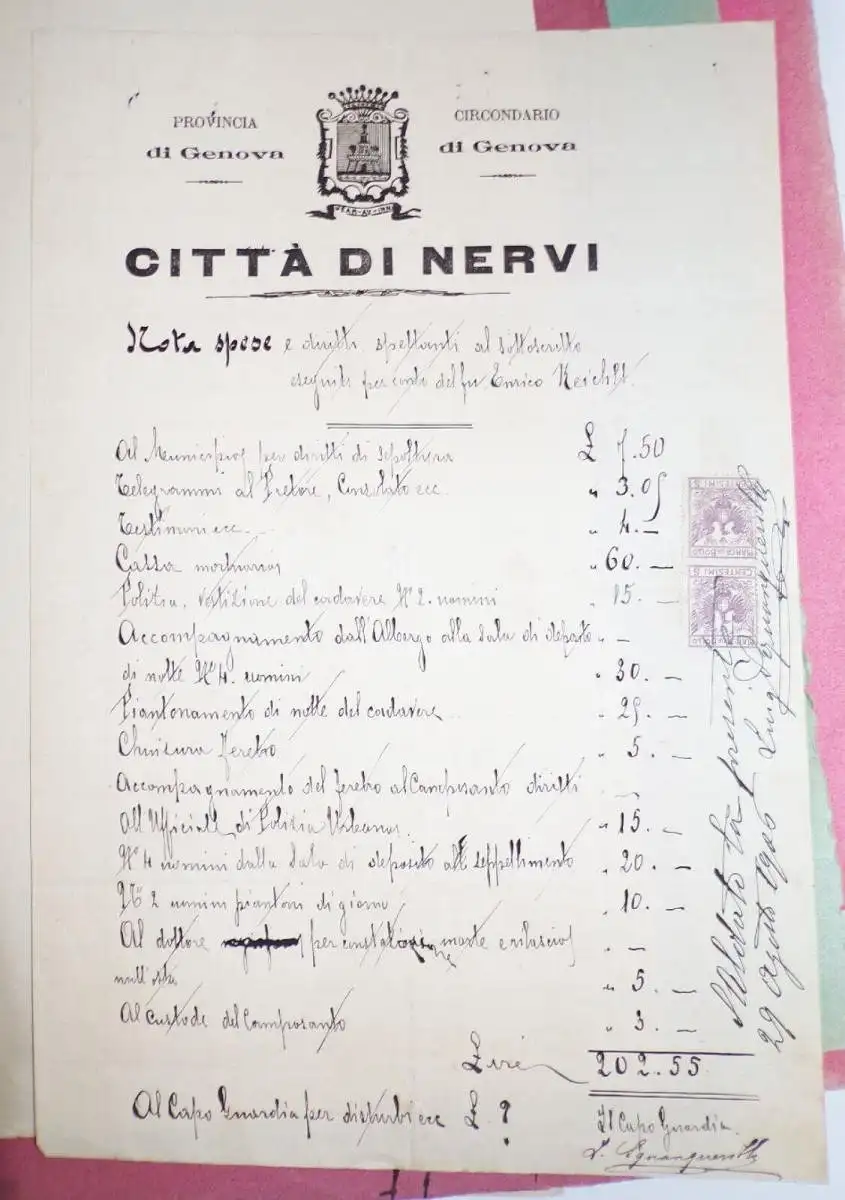 PROVINCIA
di Genova
CIRCONDARIO
di Genova
CITTÀ DI NERVI
Nota spese e diritti spettanti al sottoscritto
eseguiti per conto del fu Enrico
Al Municipio per diritti di sepoltura £ 7.50
Telegrammi al Pretore, Consolato ecc. " 3.05
Testimoni ecc. " 4.—
Cassa mortuaria " 60.—
Pulizia, vestizione del cadavere No 2. uomini " 15.—
Accompagnamento dall'Albergo alla Sala di deposito " —
di notte No 4. uomini " 30.—
Piantonamento di notte del cadavere " 25.—
Chiusura feretro " 5.—
Accompagnamento del feretro al Camposanto diritti —
All'Ufficiale di Polizia Urbana " 15.—
No 4 uomini dalla Sala di deposito al seppellimento " 20.—
No 2 uomini piantoni di giorno " 10.—
Al dottore per constatazione morte e rilascio " —
null'osta " 5.—
Al custode del Camposanto " 3.—
Lire 202.55
Al Capo Guardia per disturbi ecc L. ?
Il Capo Guardia
CENTESIMI 5
MARCA DA BOLLO
CENTESIMI 5
MARCA DA BOLLO
Saldato la presente
29 Agosto 1906 Luigi